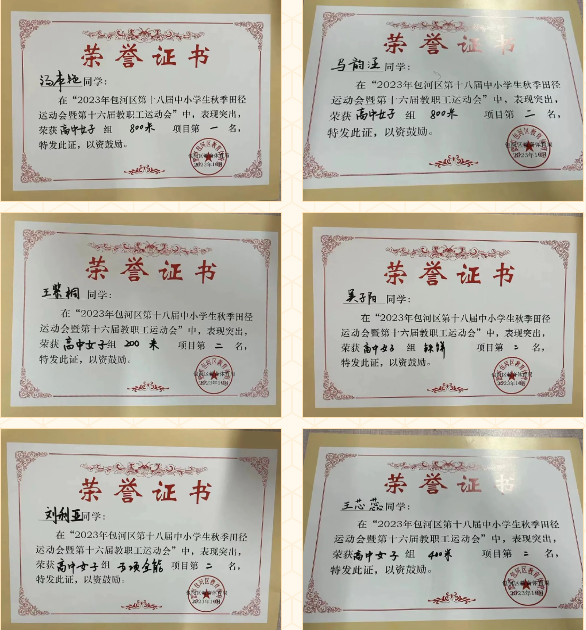 荣誉证书
同学：
在“2023年包河区第十八届中小学生秋季田径
运动会暨第十六届教职工运动会”中，表现突出，
荣获高中女子组 800米 项目第一名，
特发此证，以资鼓励。
荣誉证书
马韵汪同学：
在“2023年包河区第十八届中小学生秋季田径
运动会暨第十六届教职工运动会”中，表现突出，
荣获高中女子组 800米 项目第二名，
特发此证，以资鼓励。
荣誉证书
王 桐 同学：
在“2023年包河区第十八届中小学生秋季田径
运动会暨第十六届教职工运动会”中，表现突出，
荣获高中女子组 200米 项目第二名，
特发此证，以资鼓励。
荣誉证书
吴子阳 同学：
在“2023年包河区第十八届中小学生秋季田径
运动会暨第十六届教职工运动会”中，表现突出，
荣获高中女子组 铁饼 项目第二名，
特发此证，以资鼓励。
荣誉证书
刘利亚同学：
在“2023年包河区第十八届中小学生秋季田径
运动会暨第十六届教职工运动会”中，表现突出，
荣获高中女子组 五项全能 项目第二名，
特发此证，以资鼓励。
荣誉证书
王芯蕊同学：
在“2023年包河区第十八届中小学生秋季田径
运动会暨第十六届教职工运动会”中，表现突出，
荣获高中女子组 400米 项目第二名，
特发此证，以资鼓励。